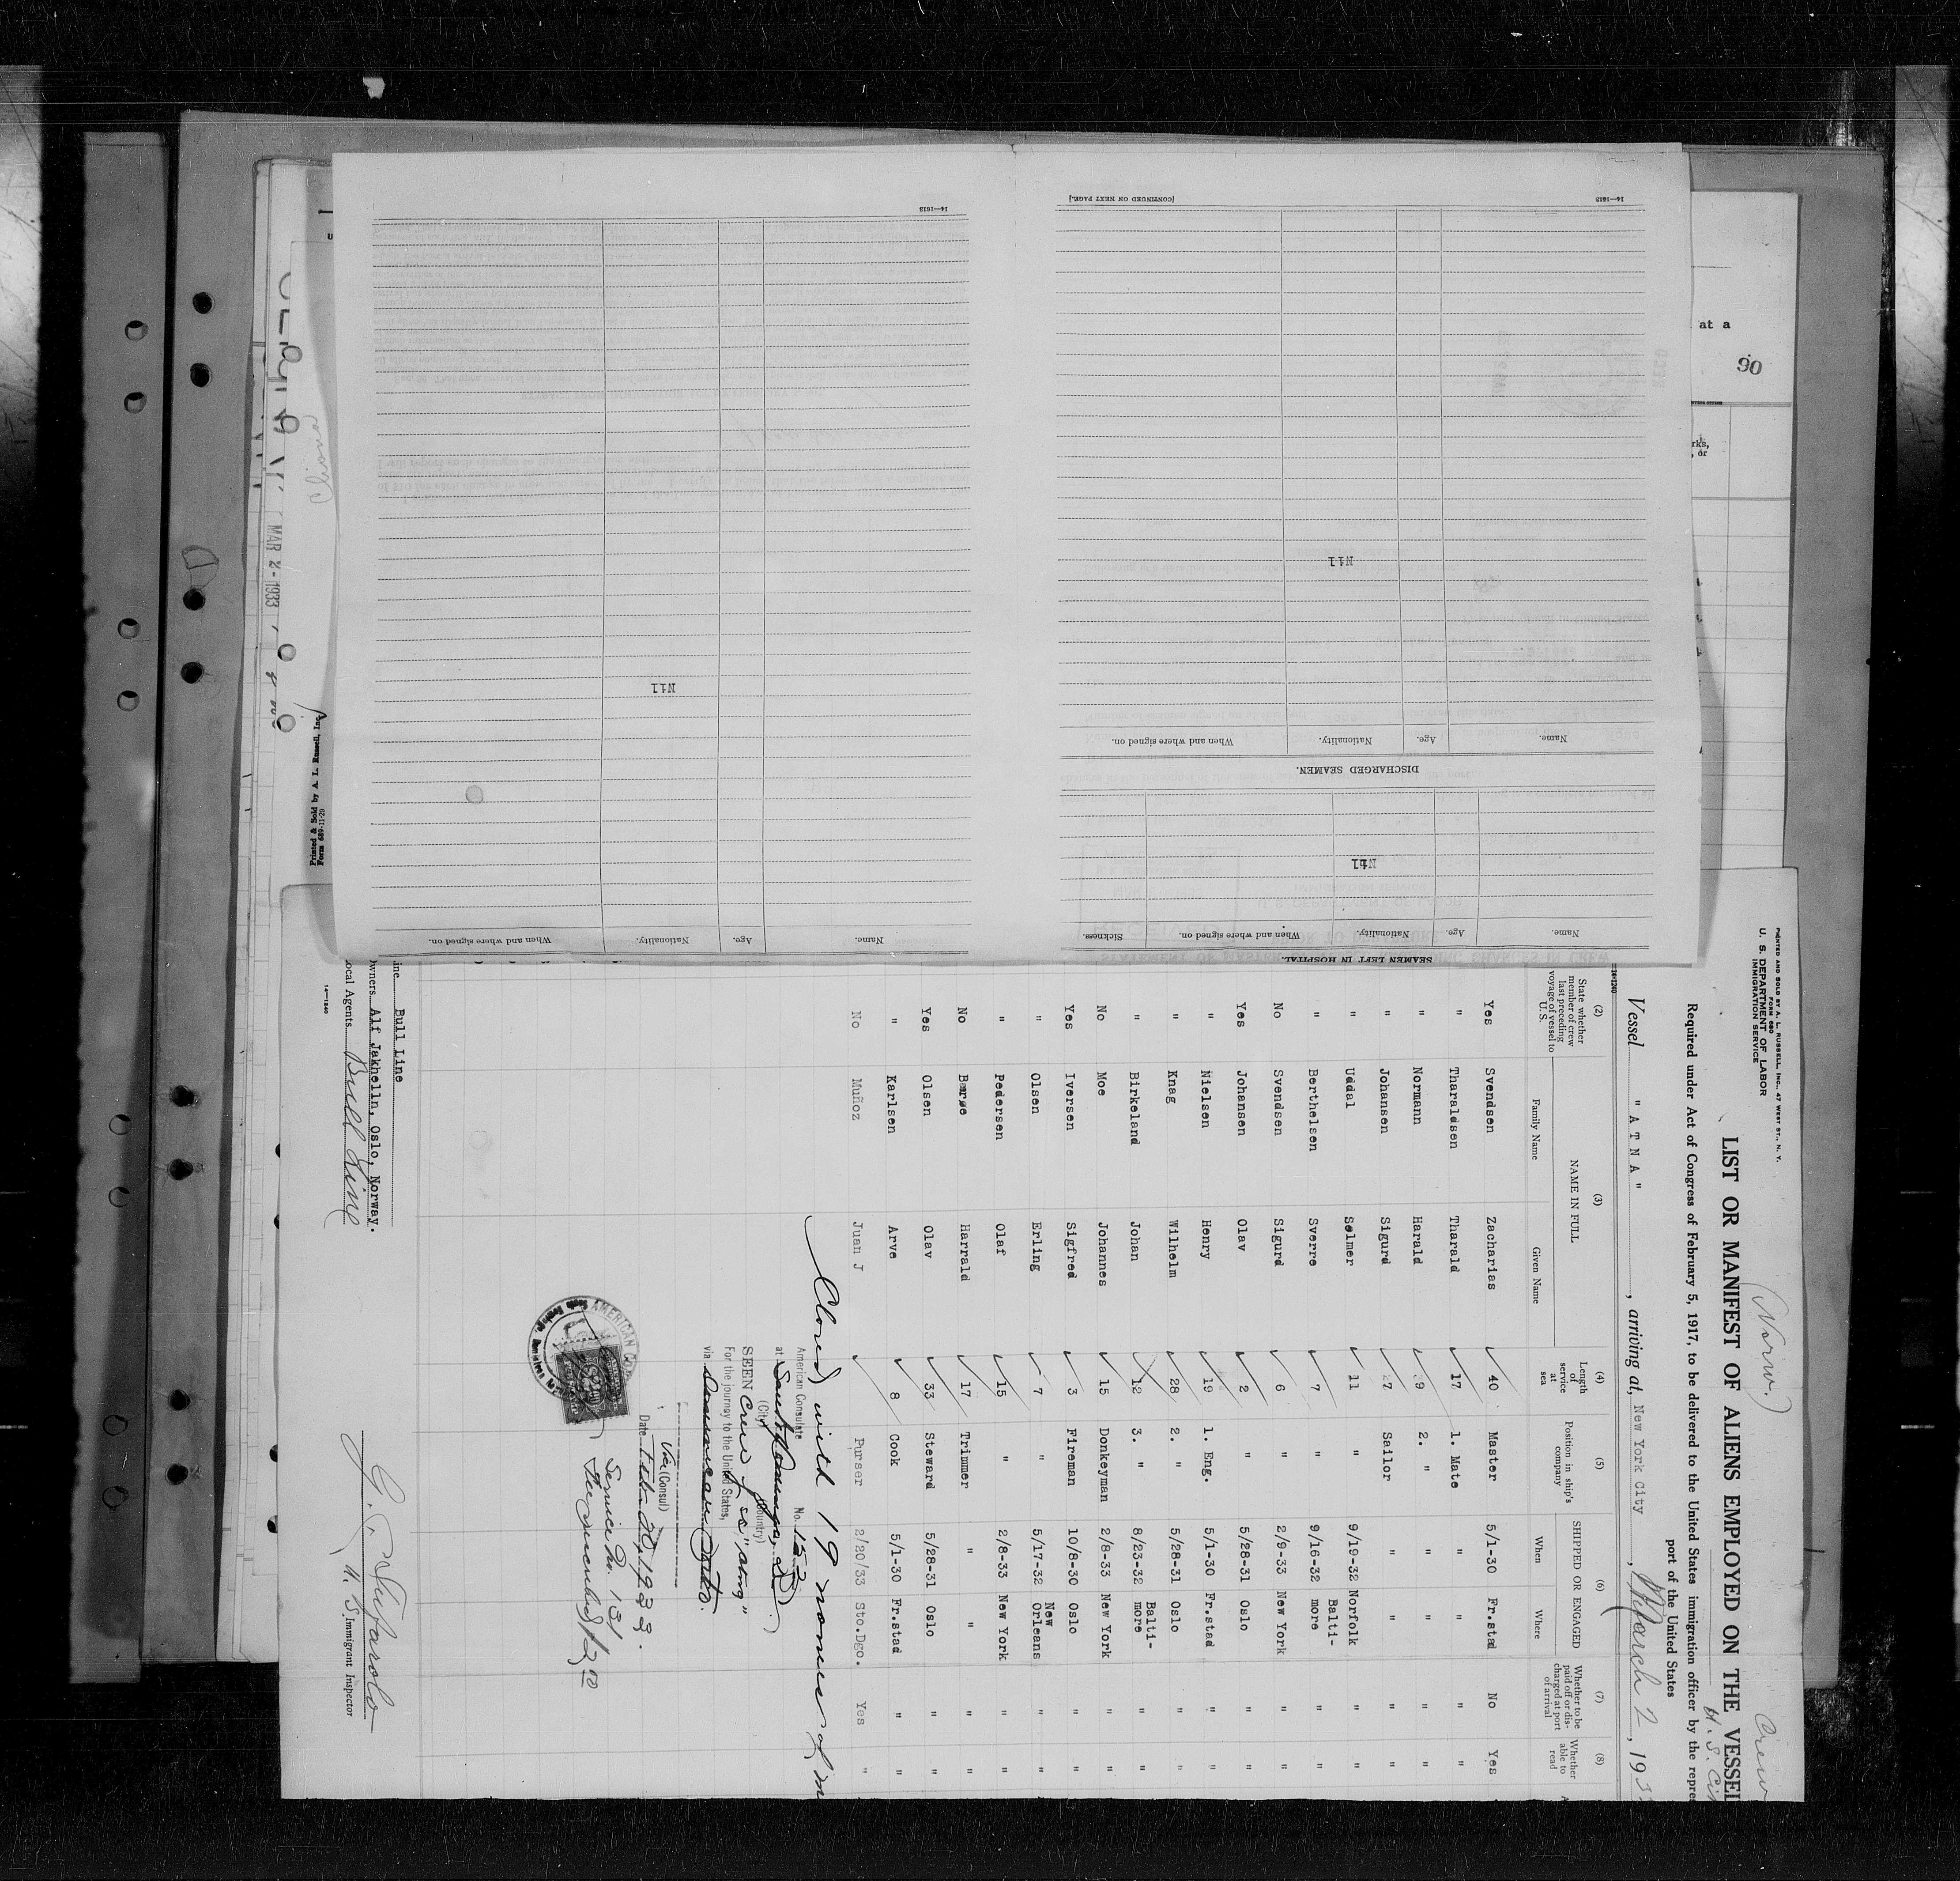 14—1615
Nil
When and where signed on. Nationality. Age. Name.
[CONTINUED ON NEXT PAGE.] 14—1615
Nil
Name. Age. Nationality. When and where signed on.
DISCHARGED SEAMEN.
Nil
Name. Age. Nationality. When and where signed on. Sickness.
SEAMEN LEFT IN HOSPITAL.
at a
90
rks,
, or
MAR 2 - 1933
Printed & Sold by A. L. Russell, Inc.
Form 689-11-29
PRINTED AND SOLD BY A. L. RUSSELL, INC., 47 WEST ST., N. Y.
FORM 680
U. S. DEPARTMENT OF LABOR
IMMIGRATION SERVICE
(Norw.) Crew
LIST OR MANIFEST OF ALIENS EMPLOYED ON THE VESSEL
U. S. Cit
Required under Act of Congress of February 5, 1917, to be delivered to the United States immigration officer by the repres
port of the United States
Vessel " A T N A " , arriving at, New York City , March 2 , 193
14-1240
(2) (3) (4) (5) (6) (7) (8)
State whether member of crew last preceding voyage of vessel to U. S. NAME IN FULL Length of service at sea Position in ship's company SHIPPED OR ENGAGED Whether to be paid off or discharged at port of arrival Whether able to read
Family Name Given Name When Where
Yes Svendsen Zacharias 40 Master 5/1-30 Fr.stad No Yes
" Tharaldsen Tharald 17 1. Mate " " " "
" Normann Harald 9 2. " " " " "
" Johansen Sigurd 7 Sailor " " " "
" Uddal Selmer 11 " 9/19-32 Norfolk " "
" Berthelsen Sverre 7 " 9/16-32 Balti-more " "
No Svendsen Sigurd 6 " 2/9-33 New York " "
Yes Johansen Olav 2 " 5/28-31 Oslo " "
" Nielsen Henry 19 1. Eng. 5/1-30 Fr.stad " "
" Knag Wilhelm 28 2. " 5/28-31 Oslo " "
" Birkeland Johan 12 3. " 8/23-32 Balti-more " "
No Moe Johannes 15 Donkeyman 2/8-33 New York " "
Yes Iversen Sigfred 3 Fireman 10/8-30 Oslo " "
" Olsen Erling 7 " 5/17-32 New Orleans " "
" Pedersen Olaf 15 " 2/8-33 New York " "
No Barøe Harrald 17 Trimmer " " " "
Yes Olsen Olav 33 Steward 5/28-31 Oslo " "
" Karlsen Arve 8 Cook 5/1-30 Fr.stad " "
No Muñoz Juan J Purser 2/20/33 Sto.Dgo. Yes "
Closed with 19 names
American Consulate No. 132
at Santo Domingo, D.R.
(City) (Country)
SEEN Crew of ss "Atna"
For the journey to the United States,
via
Vice (Consul)
Date Feb. 20, 1933.
Service No. 131
Fee $2.00
AMERICAN CONSULATE
Line Bull Line
Owners Alf Jakhelln, Oslo, Norway.
Local Agents Bull Line
14—1240
U. S. Immigrant Inspector